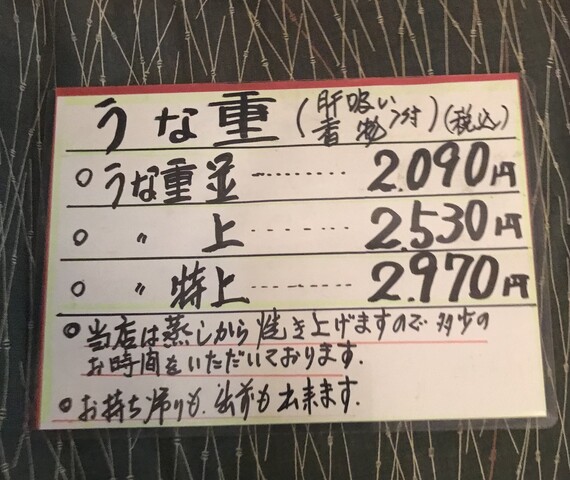 うな重(肝吸い香物付)(税込)
○うな重並‥‥‥‥2.090円
○〃 上‥‥‥‥2.530円
○〃 特上‥‥‥‥2.970円
◎当店は蒸しから焼き上げますので多少の
お時間をいただいております.
◎お持ち帰りも.出前も出来ます.